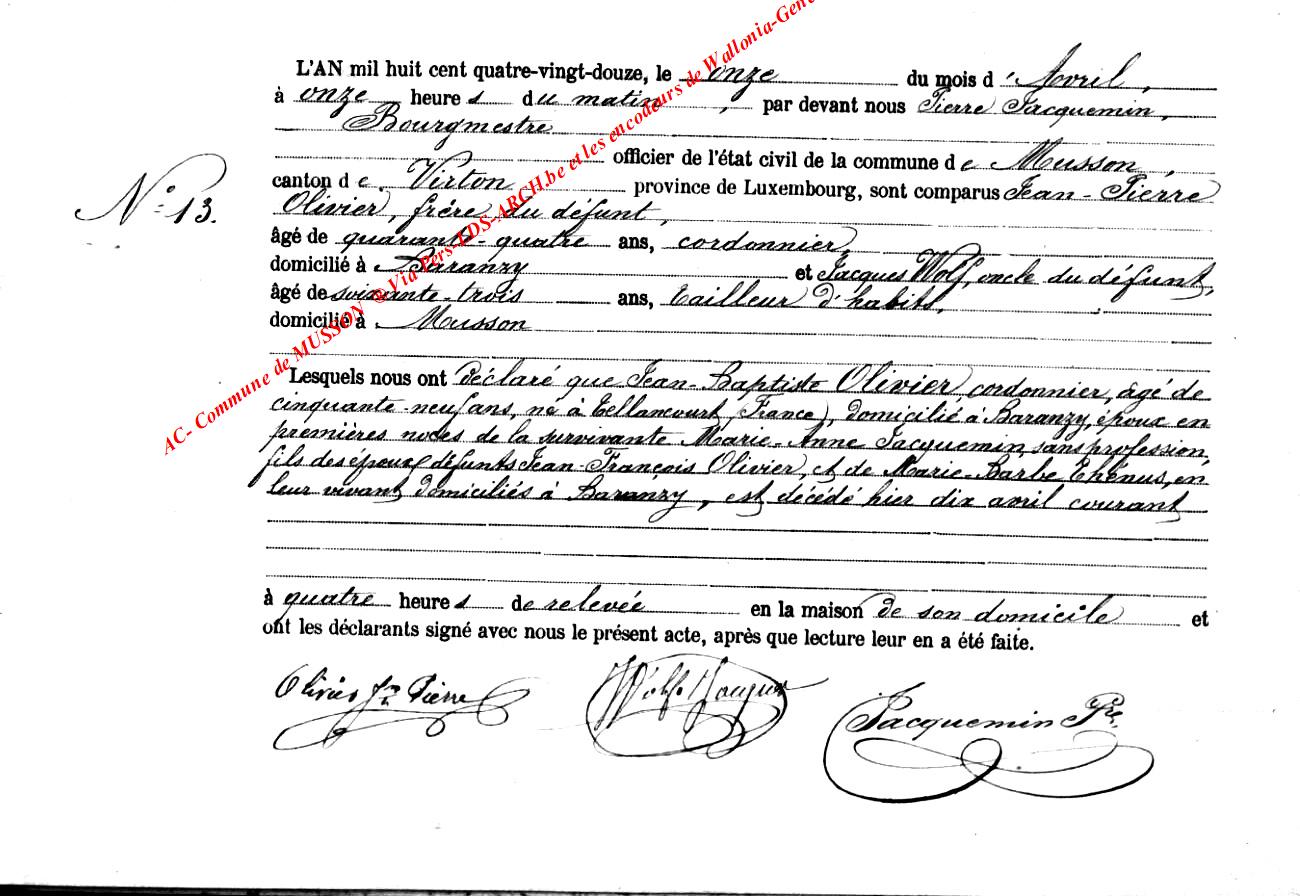 L'AN mil huit cent quatre-vingt-douze, le onze du mois d'Avril,
à onze heures du matin, par devant nous Pierre Jacquemin,
Bourgmestre
officier de l'état civil de la commune de Musson,
canton de Virton province de Luxembourg, sont comparus Jean-Pierre
Olivier, frère du défunt,
âgé de quarante-quatre ans, cordonnier,
domicilié à Baranzy et Jacques Wolf, oncle du défunt,
âgé de soixante-trois ans, tailleur d'habits,
domicilié à Musson
N° 13.
Lesquels nous ont déclaré que Jean-Baptiste Olivier, cordonnier, âgé de
cinquante-neuf ans, né à Tellancourt (France), domicilié à Baranzy, époux en
premières noces de la survivante Marie-Anne Jacquemin, sans profession,
fils des époux défunts Jean-François Olivier, et de Marie-Barbe Thénus, en
leur vivant domiciliés à Baranzy, est décédé hier dix avril courant
à quatre heures de relevée en la maison de son domicile et
ont les déclarants signé avec nous le présent acte, après que lecture leur en a été faite.
Olivier Jn Pierre
Wolf Jacques
Jacquemin Pre.
AC- Commune de MUSSON @Via Pers-LDS-ARCH.be et les encodeurs de Wallonia-Gene